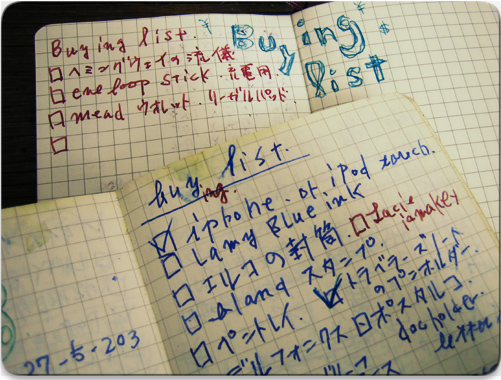 Buying list.
Buying
list
□ ヘミングウェイの流儀
□ eneloop stick. 充電用
□ mead ウォレット. リーガルパッド.
□
buying list.
☑ iphone. or. ipod touch.
□ Lamy Blue ink
□ エルコの封筒. □ Lacie iamakey
□ bland スタンプ.
□ ペントレイ. ☑ トラベラーズノート のペンホルダー.
デルフォニックス □ ポスタルコ. doc holder.
27-5-203